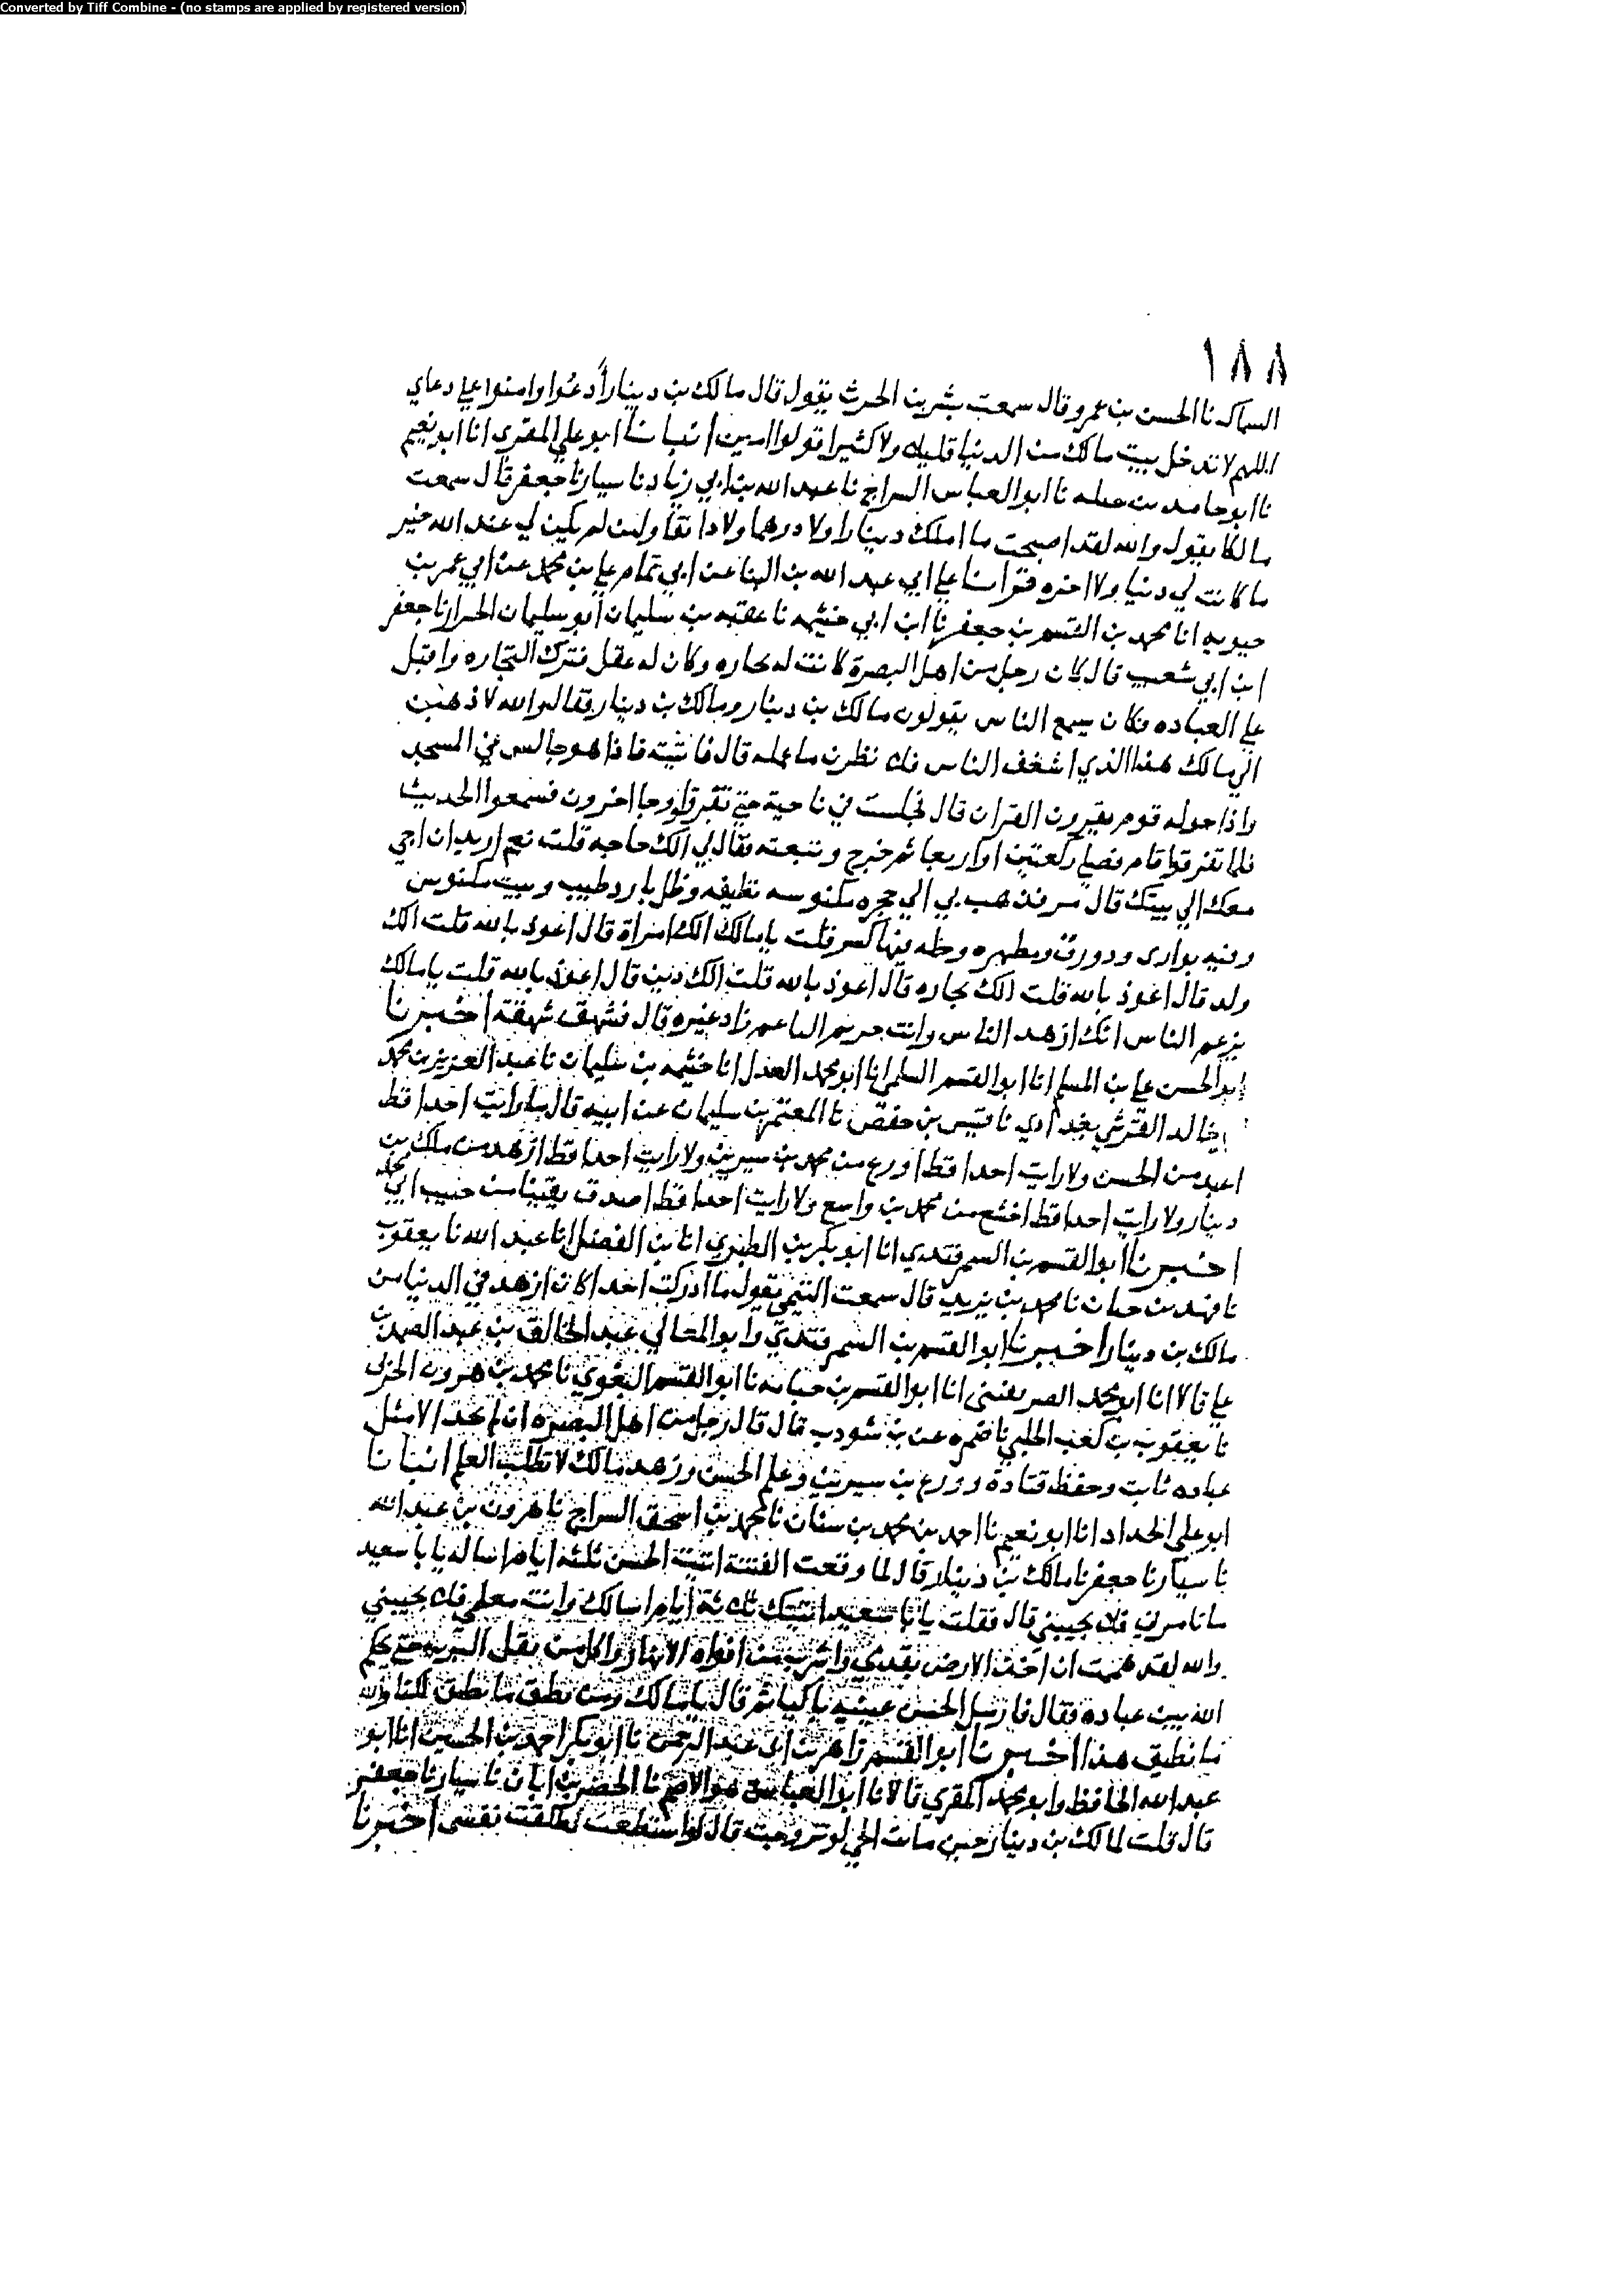 Converted by Tiff Combine - (no stamps are applied by registered version)
١٨٨
السماك نا الحسن بن عمرو قال سمعت بشر بن الحرث يقول قال مالك بن دينار ادعوا وامنوا علي دعاي
اللهم لا تدخل بيت مالك من الدنيا قليلا ولا كثيرا قولوا امين انبانا ابو علي المقري انا ابو نعيم
نا ابو حامد بن جبله نا ابو العباس السراج نا عبد الله بن ابي زياد نا سيار نا جعفر قال سمعت
مالكا يقول والله لقد اصبحت ما املك دينارا ولا درهما ولا دانقا ولين لم يكن لي عند الله خير
ما كانت لي دنيا ولا اخره قراتا علي ابي عبد الله بن البنا عن ابي تمام علي بن محمد عن ابي عمر بن
حيويه انا محمد بن القسم بن جعفر نا ابن ابي خيثمه نا عقبه بن سليمان ابو سليمان الحرار نا جعفر
ابن ابي شعيب قال كان رجل من اهل البصرة كانت له تجاره وكان له عقل فترك التجاره واقبل
علي العباده فكان يسمع الناس يقولون مالك بن دينار ومالك بن دينار فقال والله لاذهبن
الي مالك هذا الذي اشغف الناس فلا نظرن ما عمله قال فاتيته فاذا هو جالس في المسجد
واذا حوله قوم يقرون القران قال فجلست في ناحية حتي تفرقوا وجا اخرون فسمعوا الحديث
فلما تفرقوا قام فصلي ركعتين او اربعا ثم خرج وتبعته فقال لي الك حاجه قلت نعم اريد ان اجي
معك الي بيتك قال مر فذهب بي الي حجره مكنوسه نظيفه وظل بارد طيب وبيت مكنوس
وفيه بوارى ودورق ومطهره وجله فيها كسر قلت يا مالك الك امراة قال اعوذ بالله قلت الك
ولد قال اعوذ بالله قلت الك تجاره قال اعوذ بالله قلت الك دين قال اعوذ بالله قلت يا مالك
يزعم الناس انك ازهد الناس وانت زاد غيره قال فشهق شهقة اخبرنا
ابو الحسن علي بن المسلم انا ابو القسم السلمي انا ابو محمد العدل انا خيثمه بن سليمان نا عبد العزيز بن محمد
خالد القرشي بغدادي نا قيس بن حفص نا المعتمر بن سليمان عن ابيه قال ما رايت احدا قط
اعبد من الحسن ولا رايت احدا قط اورع من محمد بن سيرين ولا رايت احدا قط ازهد من ملك بن
دينار ولا رايت احدا قط اخشع من محمد بن واسع ولا رايت احدا قط اصدق يقينا من حبيب ابي محمد
اخبرنا ابو القسم بن السمرقندي انا ابو بكر بن الطبري انا بن الفضل انا عبد الله نا يعقوب
نا فهد بن حيان نا محمد بن يزيد قال سمعت التيمي يقول ما ادركت احدا كان ازهد في الدنيا من
مالك بن دينار اخبرنا ابو القسم بن السمرقندي وابو المعالي عبد الخالق بن عبد الصمد بن
علي قالا انا ابو محمد الصريفيني انا ابو القسم بن حبابه نا ابو القسم البغوي نا محمد بن هرون الحربي
نا يعقوب بن كعب الحلبي نا ضمره عن بن شودب قال قال رجل من اهل البصره ان لم تجد الا مثل
عباده ثابت وحفظ قتادة وورع بن سيرين وعلم الحسن وزهد مالك لا تطلب العلم انبانا
ابو علي الحداد انا ابو نعيم نا احمد بن محمد بن سنان نا محمد بن اسحق السراج نا هرون بن عبد الله
نا سيار نا جعفر نا مالك بن دينار قال لما وقعت الفتنة اتيت الحسن ثلثة ايام اساله يا با سعيد
ما تامرني فلا يجيبني قال فقلت يا با سعيد اتيتك ثلاثة ايام اسالك وانت معلمي فلا تجيبني
والله لقد هممت ان اخذ الارض بقدمي واشرب من افواه الانهار واكل من بقل البريه حتي يحكم
الله بين عباده فقال فارسل الحسن عينيه باكيا ثم قال يا مالك ومن يطيق ما تطيق لكنا والله
ما نطيق هذا اخبرنا ابو القسم زاهر بن ابي عبد الرحمن نا ابو بكر احمد بن الحسين انا ابو
عبد الله الحافظ وابو محمد المقري قالا نا ابو العباس هو الاصم نا الخضر بن ابان نا سيار نا جعفر
قال قلت لمالك بن دينار حين مات الحي لو تزوجت قال لو استطعت لطلقت نفسي اخبرنا